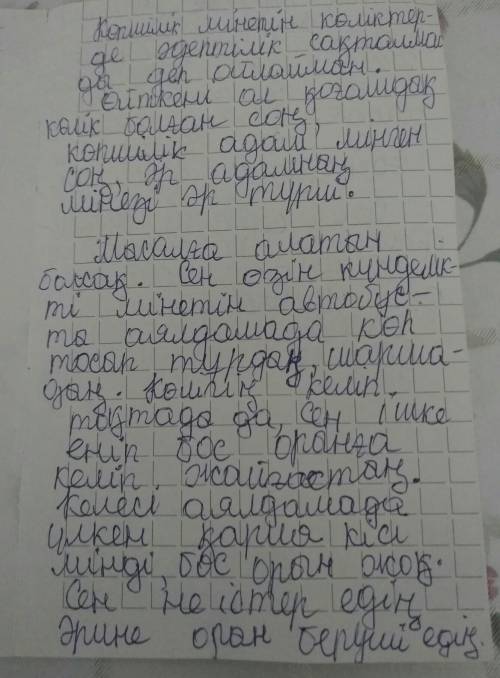 Көпшілік мінетін көліктер-
де әдептілік сақталмай
ды деп ойлаймын.
Өйткені ол қоғамдақ
көлік болған соң,
көпшілік адам мінген
соң, әр адамның
мінезі әр түрлі.
Мысалға алатын
болсақ. Сен өзін күнделік-
ті мінетін автобус-
ты аялдамада көп
тосып тұрдаң, шарша-
даң. Көлігің келіп
тоқтада да, сен ішке
еніп бос оранға
келіп, жайғастаң.
Келесі аялдамада
үлкен қария кісі
мінді, бос орын жоқ.
Сен не істер едің
Әрине оран беруші едің.